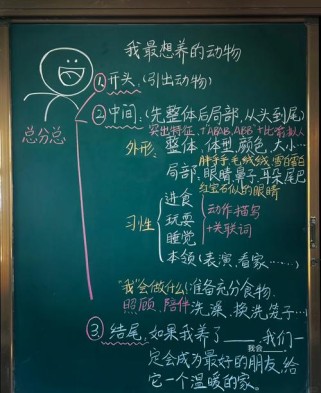 我最想养的动物
①开头:(引出动物)
②中间:(先整体后局部,从头到尾)
总分总
突出特征,+ABAB、ABB +比喻拟人
外形:整体、体型、颜色、大小…
胖乎乎 毛绒绒、雪白雪白
局部:眼睛、鼻子、耳朵、尾巴
红宝石似的眼睛
习性
进食
玩耍
睡觉
动作描写
+关联词
本领(表演、看家……)
"我"会做什么(准备充分食物、
照顾、陪伴 洗澡、换洗笼子…)
③结尾:如果我养了____,我们一
我会
定会成为最好的朋友,给
它一个温暖的家。